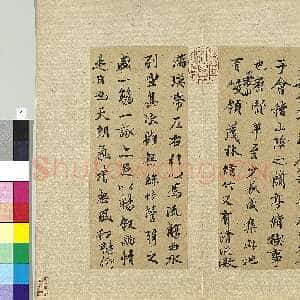 于會稽山陰之蘭亭脩稧事
也羣賢畢至少長咸集此地
有峻領茂林脩竹又有清流激
湍暎帶左右引以為流觴曲水
列坐其次雖無絲竹管弦之
盛一觴一詠亦足以暢敘幽情
是日也天朗氣清惠風和暢仰